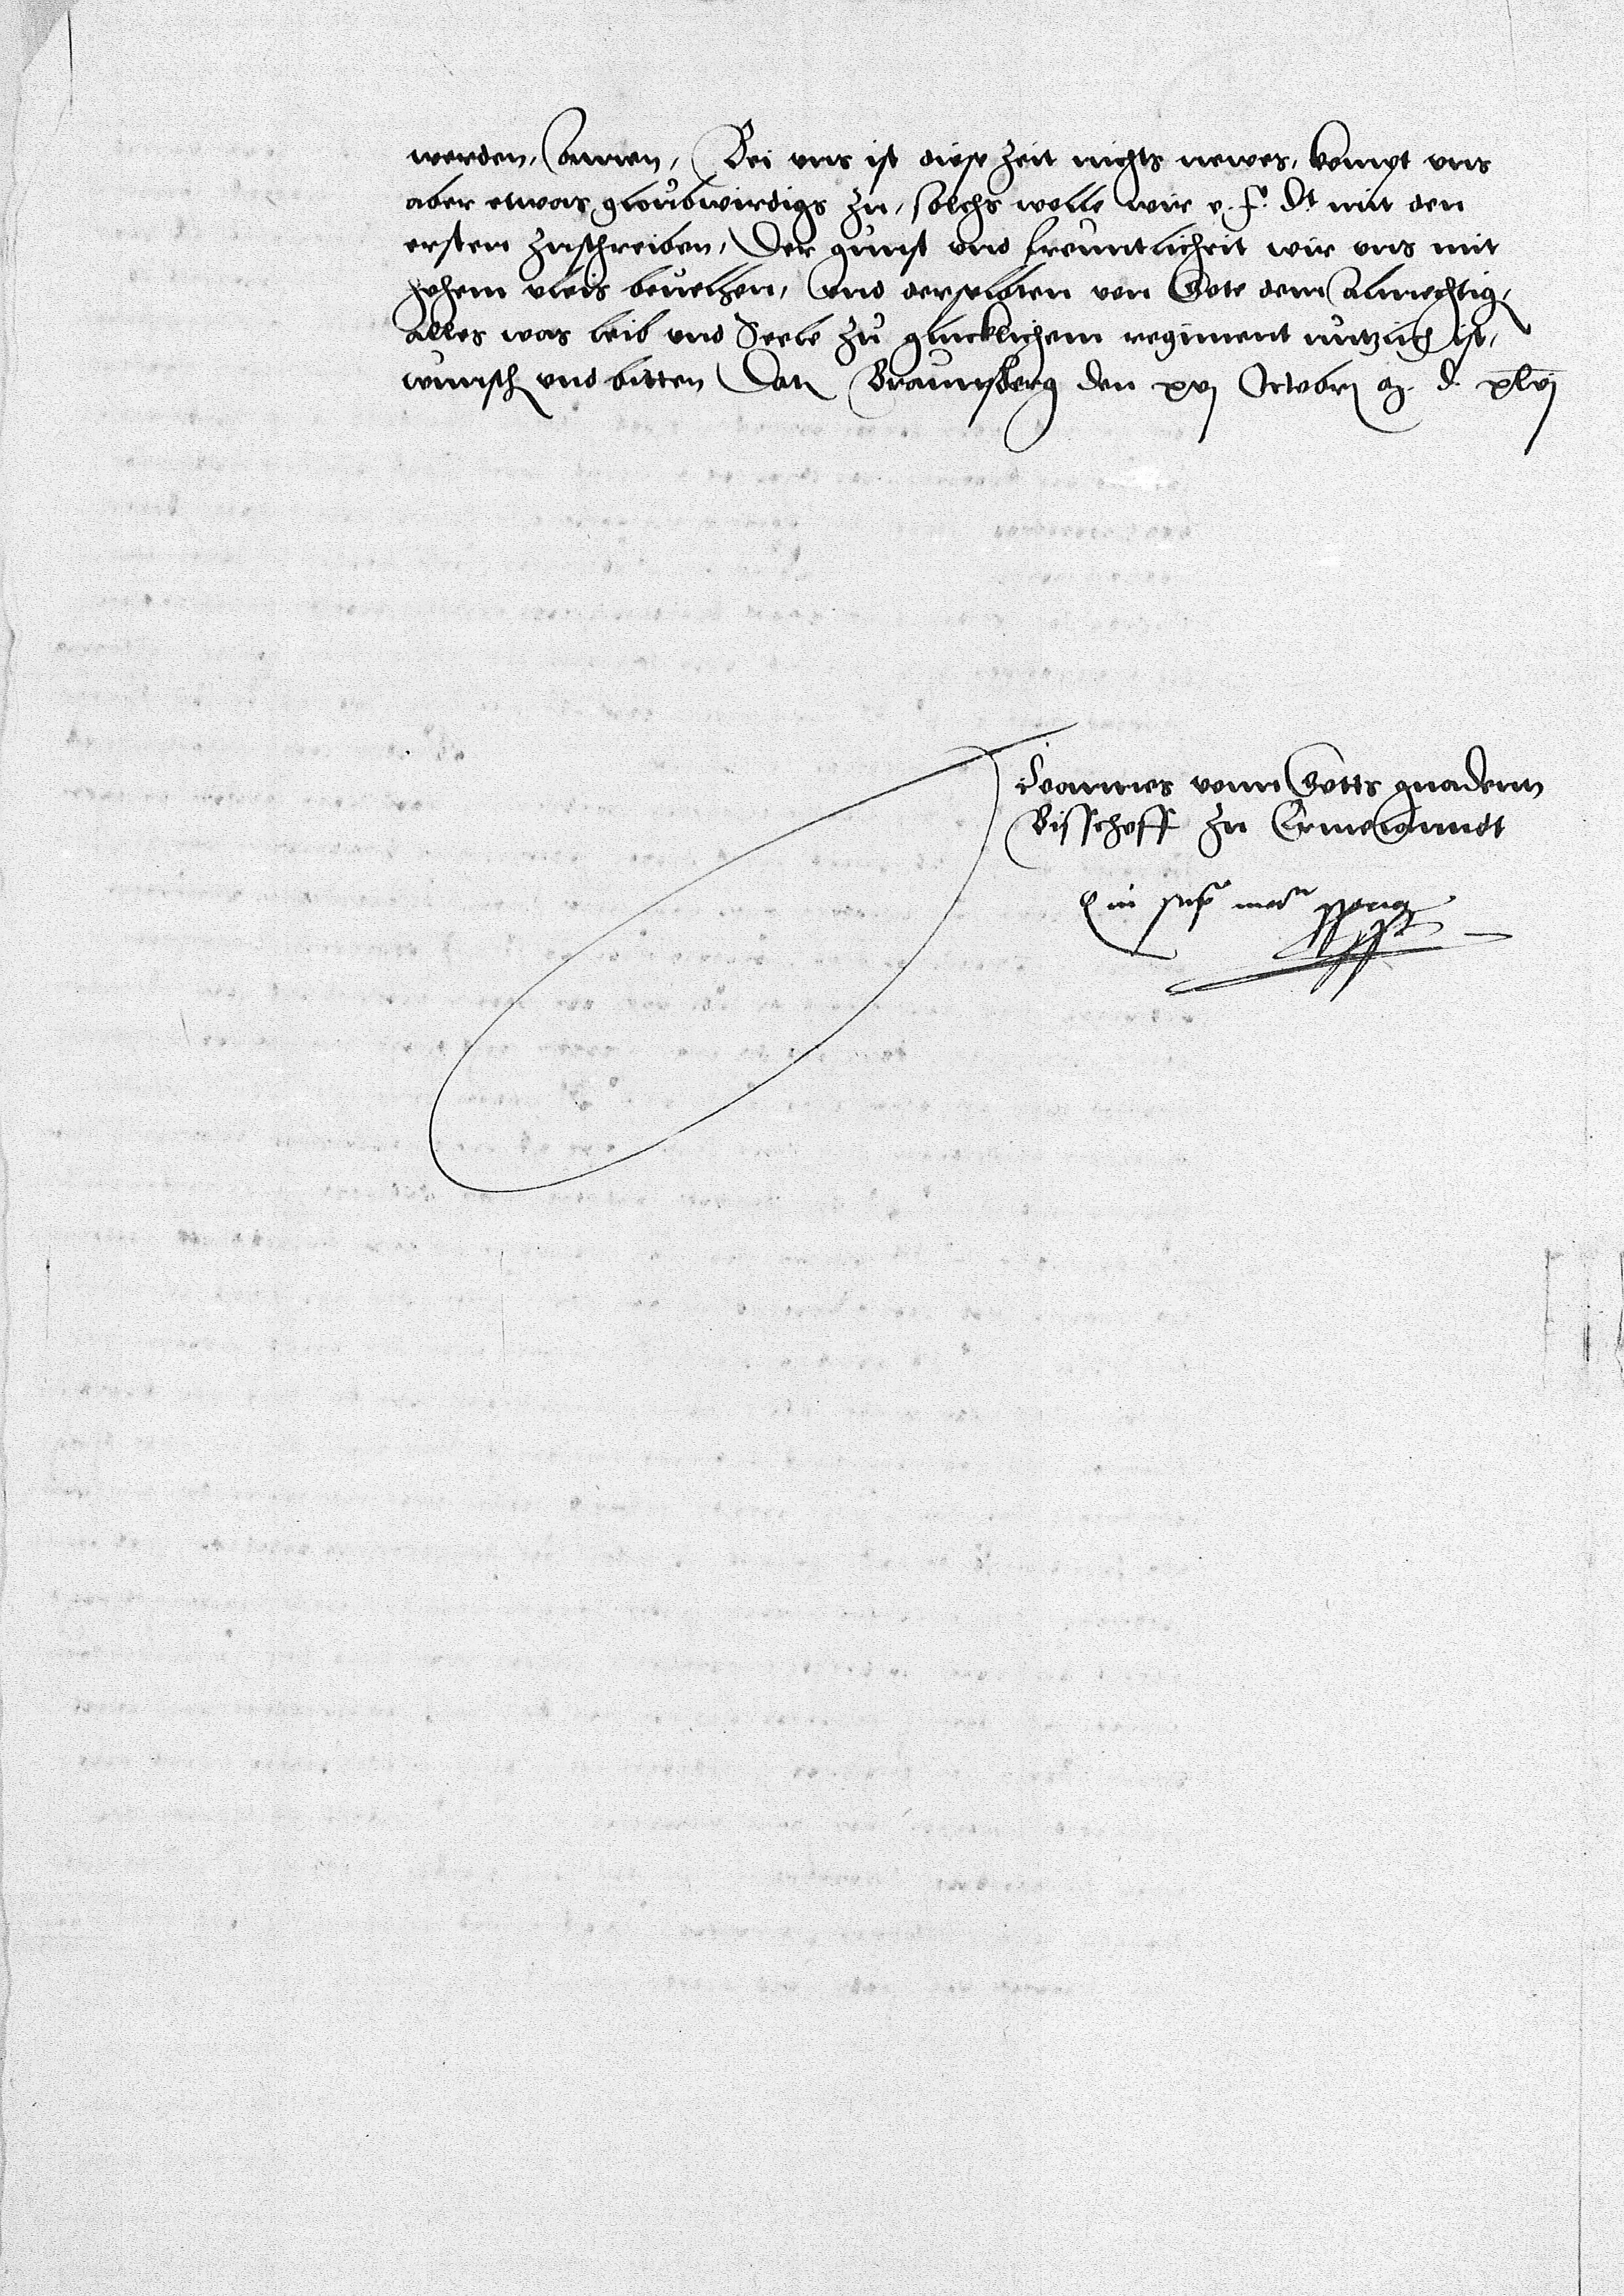 werden, Amen, Bei uns ist diese zeit nichts newes, kompt uns
aber etwas gloubwirdigs zu, solchs wolle wir e. f. dt mit den
ersten zuschreiben, Der gunst und freuntlicheit wir uns mit
hohem vleis bevelhen, und derselbten von Gote dem Almechtig
alles was leib und Seele zu glucklichem regiment nutzlich ist,
wunsch und bitten Dat Braunsberg den xvj Octobr a. d. xlvj
Joannes vonn Gotts gnadenn
Bisschoff zu Ermelanndt